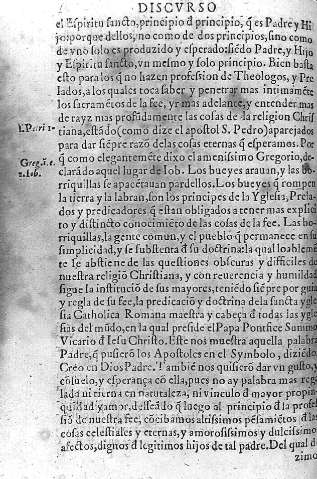 DISCVRSO
el Espiritu sancto, principio d principio, q̃ es Padre y Hi
jo: porque dellos, no como de dos principios, sino como
de vno solo es produzido y esperado: siẽdo Padre, y Hijo
y Espiritu sancto, vn mesmo y solo principio. Bien basta
esto para los que no hazen profession de Theologos, y Pre
lados, a los quales toca saber y penetrar mas intimamẽte
los sacramẽtos de la fee, yr mas adelante, y entender mas
de rayz mas profũdamente las cosas de la religion Chris
I. Petri 3.
tiana, estãdo (como dize el apostol S. Pedro) aparejados
para dar siẽpre razõ delas cosas eternas q̃ esperamos. Por
q̃ como elegantemẽte dixo el amenissimo Gregorio, de-
Greg. 2. c.
2. Iob.
clarãdo aquel lugar de Iob. Los bueyes arauan, y las bo-
rriquillas se apacẽtauan par dellos. Los bueyes q̃ rompen
la tierra y la labran, son los principes de la Yglesia, Prela-
dos y predicadores q̃ estan obligados a tener mas explici
to y distincto conocimiẽto de las cosas de la fee. Las bo-
rriquillas, la gente comun, y el pueblo q̃ permanece en su
simplicidad, y se sustenta d̃ su doctrina: la qual loablemẽ
te se abstiene de las questiones obscuras y difficiles de
nuestra religiõ Christiana, y con reuerencia y humildad
sigue la instituciõ de sus mayores, teniẽdo siẽpre por guia
y regla de su fee, la predicaciõ y doctrina dela sancta ygle
sia Catholica Romana maestra y cabeça d̃ todas las ygle
sias del mũdo, en la qual preside el Papa Pontifice Summo
Vicario d̃ Iesu Christo. Este nos muestra aquella palabra
Padre, q̃ pusierõ los Apostoles en el Symbolo, diziẽdo
Creo en Dios Padre. Tambiẽ nos quisierõ dar vn gusto, y
cõsuelo, y esperança cõ ella, pues no ay palabra mas rega
lada ni tierna en naturaleza, ni vinculo d̃ mayor propin-
quidad y amor, desseãdo q̃ luego al principio d̃ la profes
siõ de nuestra fee, cõcibamos altissimos pẽsamiẽtos d̃ las
cosas celestiales y eternas, y amorosissimos y dulcissimos
afectos, dignos d̃ legitimos hijos de tal padre. Del qual d
zimo